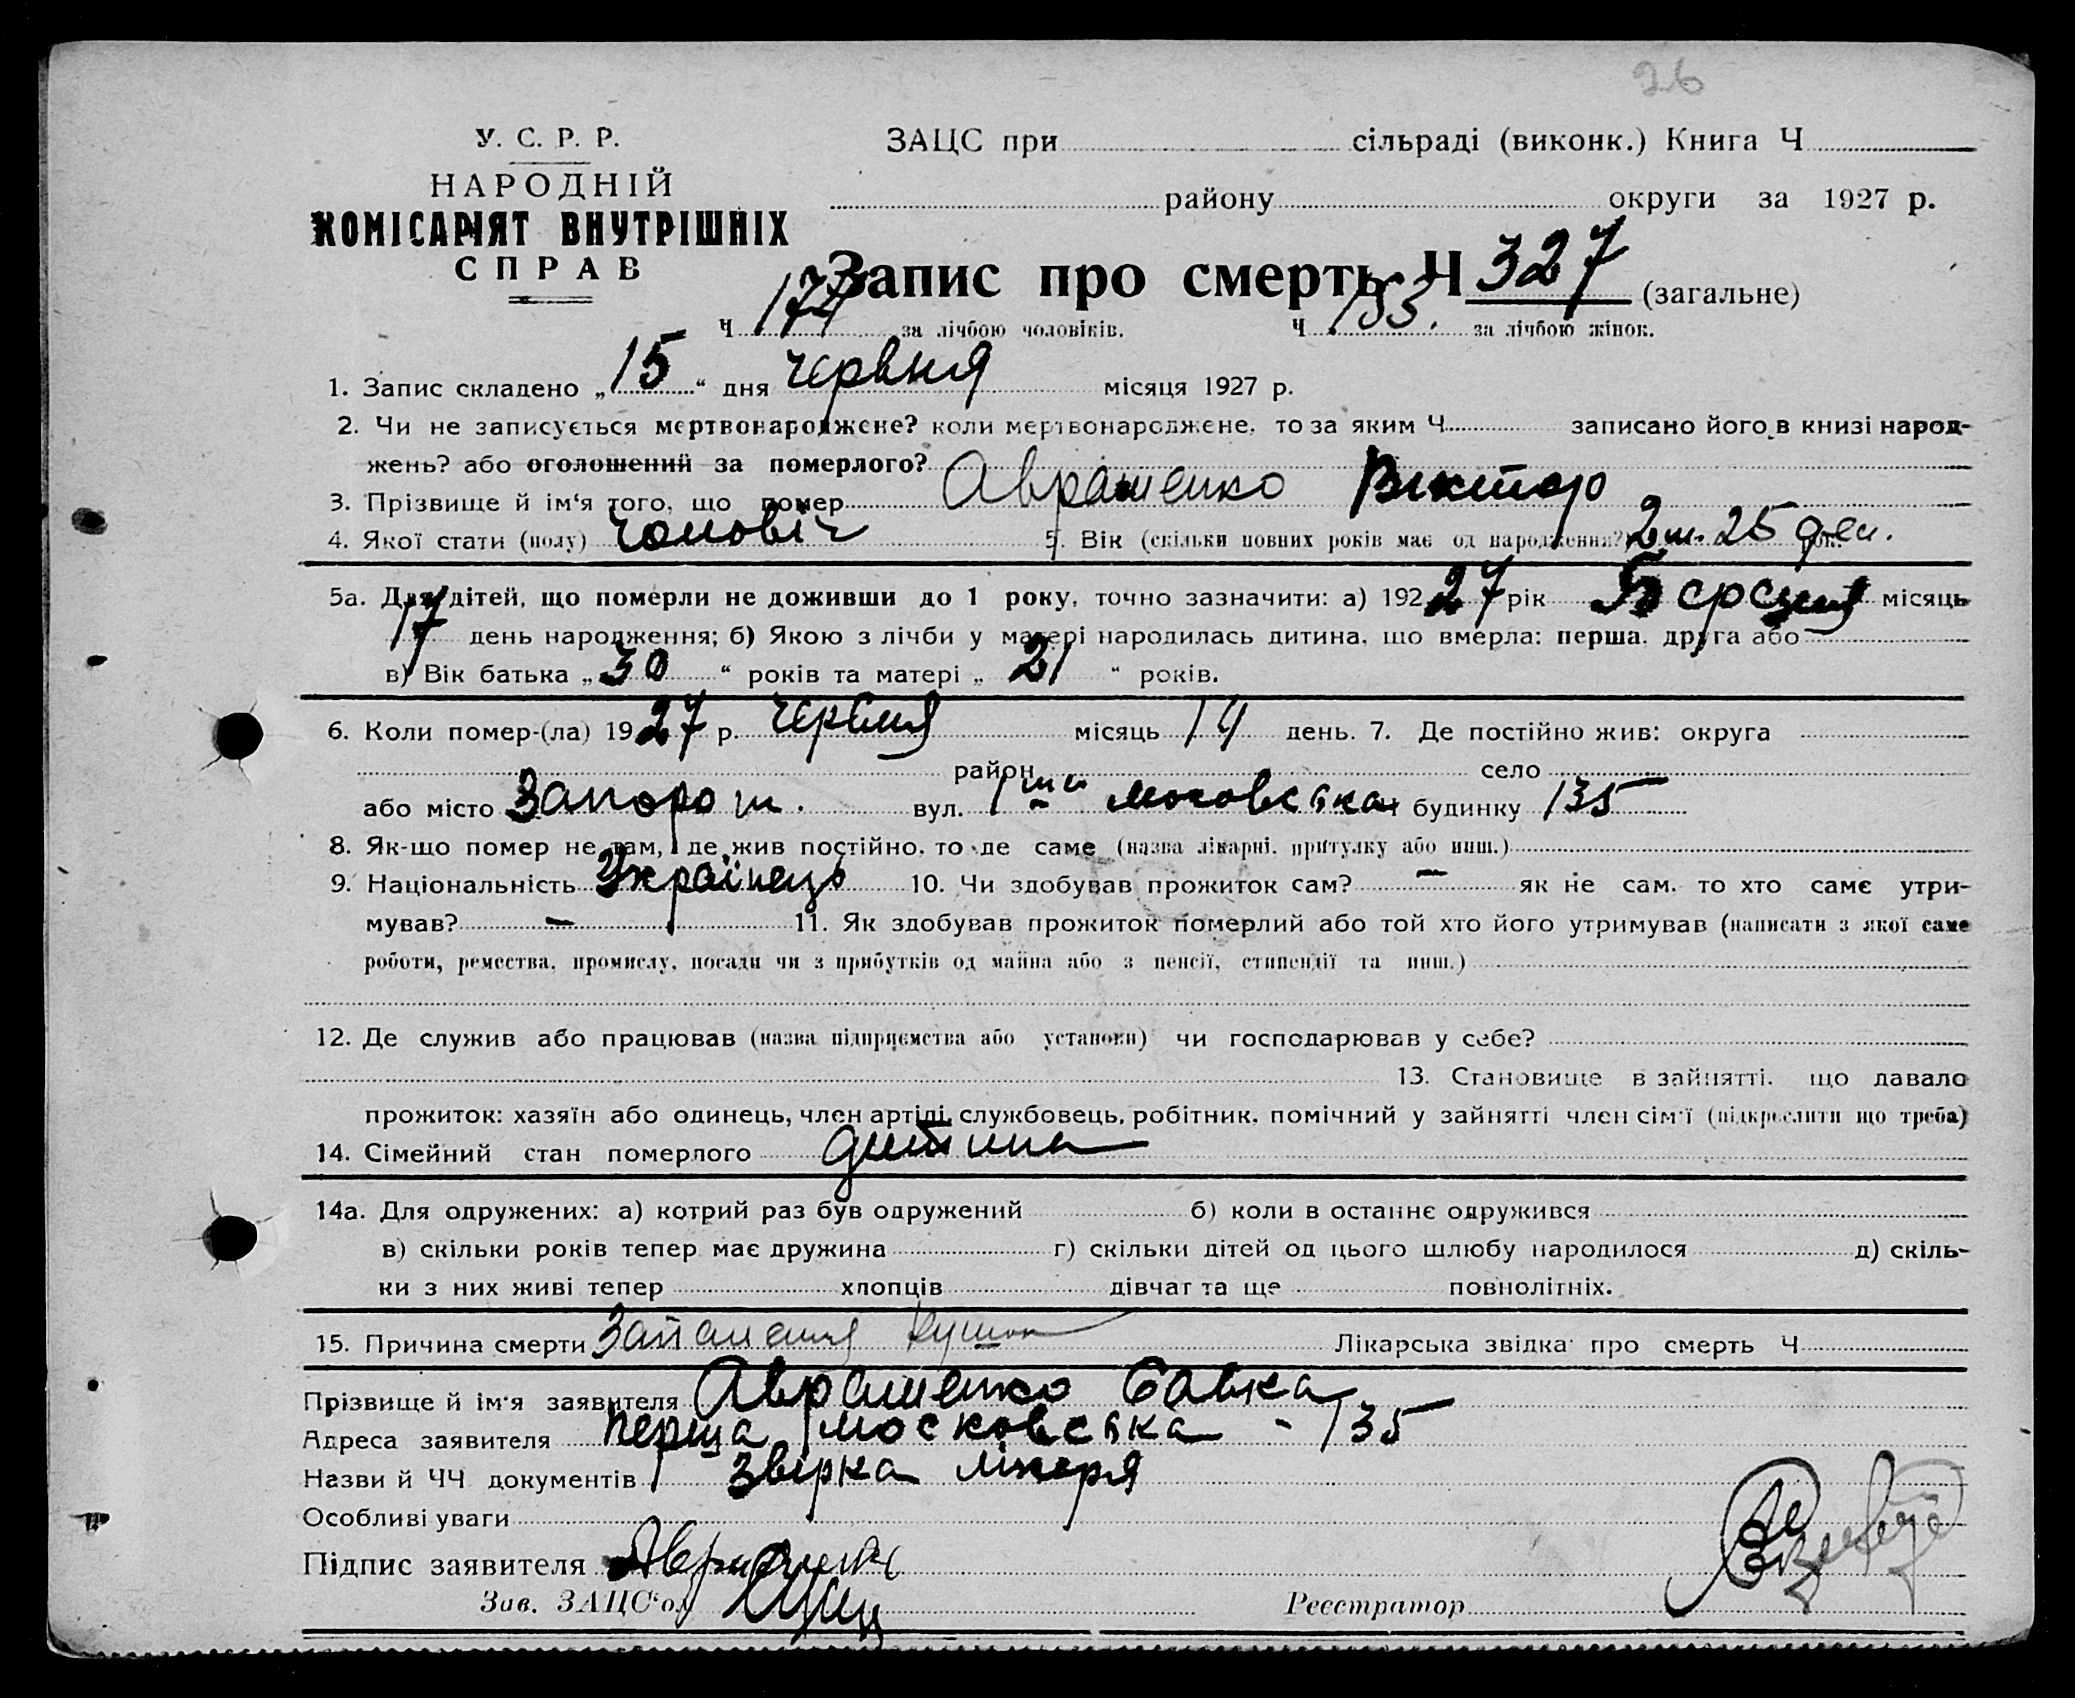 26
У. С. Р. Р.
ЗАЦС при сільраді (виконк.) Книга Ч
НАРОДНІЙ
району округи за 1927 р.
КОМІСАРІЯТ ВНУТРІШНІХ
СПРАВ
Запис про смерть Ч 327 (загальне)
Ч 174 за лічбою чоловіків. Ч 153. за лічбою жінок.
1. Запис складено „ 15 “ дня червня місяця 1927 р.
2. Чи не записується мертвонароджене? коли мертвонароджене, то за яким Ч записано його в книзі народ-
жень? або оголошений за померлого?
3. Прізвище й ім'я того, що помер Авраменко Віктор
4. Якої стати (полу) чоловіч 5. Вік (скільки повних років має од народження?) 2 м. 25 ден.
5а. Для дітей, що померли не доживши до 1 року, точно зазначити: а) 192 27 рік Березня місяць
17 день народження; б) Якою з лічби у матері народилась дитина, що вмерла: перша, друга або
в) Вік батька „ 30 “ років та матері „ 21 “ років.
6. Коли помер-(ла) 19 27 р. червня місяць 14 день. 7. Де постійно жив: округа
район село
або місто Запорож. вул. 1ша московська Ч будинку 135
8. Як-що помер не там, де жив постійно, то де саме (назва лікарні, притулку або инш.)
9. Національність Українець 10. Чи здобував прожиток сам? — як не сам, то хто саме утри-
мував? — 11. Як здобував прожиток померлий або той хто його утримував (написати з якої саме
роботи, ремества, промислу, посади чи з прибутків од майна або з пенсії, стипендії та инш.)
12. Де служив або працював (назва підприємства або установи) чи господарював у себе?
13. Становище в зайнятті, що давало
прожиток: хазяїн або одинець, член артілі, службовець, робітник, помічний у зайнятті член сім'ї (підкреслити що треба)
14. Сімейний стан померлого дитина
14а. Для одружених: а) котрий раз був одружений б) коли в останнє одружився
в) скільки років тепер має дружина г) скільки дітей од цього шлюбу народилося д) скіль-
ки з них живі тепер хлопців дівчат та ще повнолітніх.
15. Причина смерти Запалення кишок Лікарська звідка про смерть Ч
Прізвище й ім'я заявителя Авраменко Савка
Адреса заявителя перша московська - 135
Назви й ЧЧ документів звірка лікаря
Особливі уваги
Підпис заявителя
Зав. ЗАЦС'ом
Реєстратор